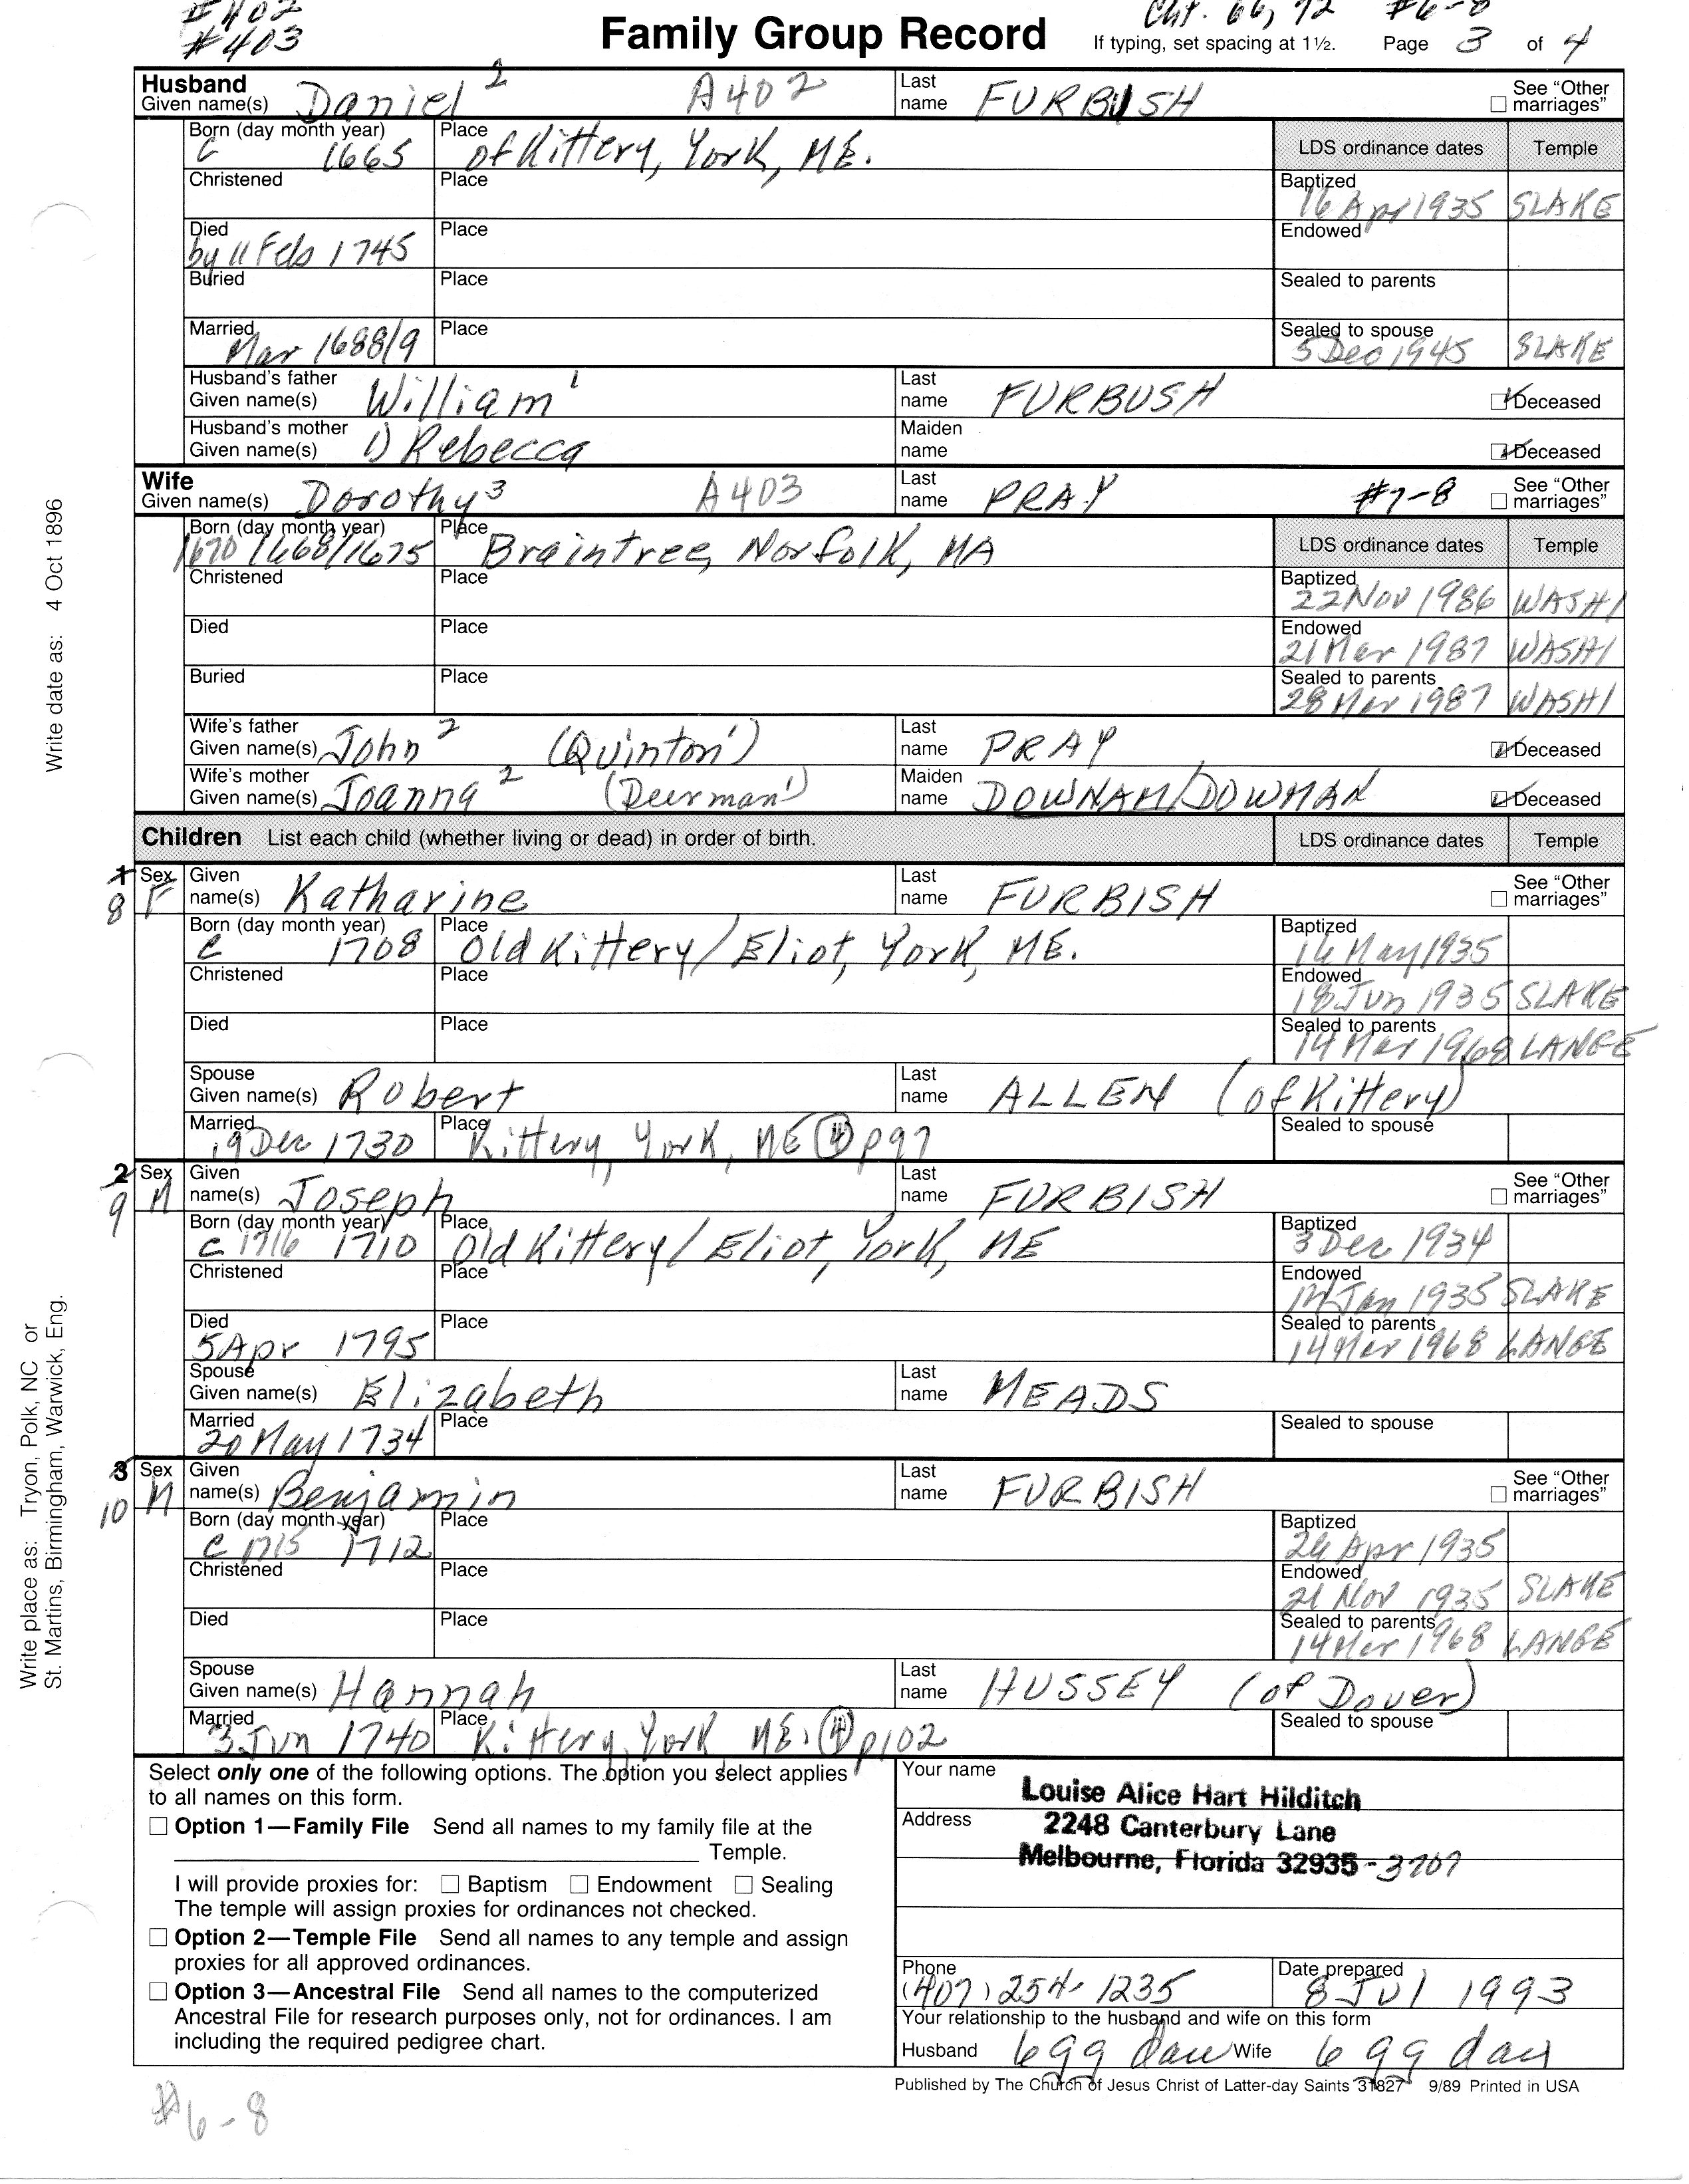 #402
#403
Family Group Record
Cht. 66, 72 #6-8
If typing, set spacing at 1½. Page 3 of 4
Husband
Given name(s) Daniel 2 A402 Last name FURBUSH See “Other marriages”
Born (day month year) C 1665 Place of Kittery, York, ME. LDS ordinance dates Temple
Christened Place Baptized 16 Apr 1935 SLAKE
Died by 11 Feb 1745 Place Endowed
Buried Place Sealed to parents
Married Mar 1688/9 Place Sealed to spouse 5 Dec 1945 SLAKE
Husband's father Given name(s) William 1 Last name FURBUSH Deceased
Husband's mother Given name(s) 1) Rebecca Maiden name Deceased
Wife
Given name(s) Dorothy 3 A403 Last name PRAY #7-8 See “Other marriages”
Born (day month year) 1670 1668/1675 Place Braintree, Norfolk, MA LDS ordinance dates Temple
Christened Place Baptized 22 Nov 1986 WASHI
Died Place Endowed 21 Mar 1987 WASHI
Buried Place Sealed to parents 28 Mar 1987 WASHI
Wife's father Given name(s) John 2 (Quinton 1) Last name PRAY Deceased
Wife's mother Given name(s) Joanna 2 (Deerman 1) Maiden name DOWNAM/DOWMAN Deceased
Children List each child (whether living or dead) in order of birth. LDS ordinance dates Temple
1 8 Sex F Given name(s) Katharine Last name FURBISH See “Other marriages”
Born (day month year) C 1708 Place Old Kittery/Eliot, York, ME. Baptized 14 May 1935
Christened Place Endowed 18 Jun 1935 SLAKE
Died Place Sealed to parents 14 Mar 1968 LANGE
Spouse Given name(s) Robert Last name ALLEN (of Kittery)
Married 19 Dec 1730 Place Kittery, York, ME (4) p97 Sealed to spouse
2 9 Sex M Given name(s) Joseph Last name FURBISH See “Other marriages”
Born (day month year) C 1716 1710 Place Old Kittery/Eliot, York, ME Baptized 3 Dec 1934
Christened Place Endowed Jan 1935 SLAKE
Died 5 Apr 1795 Place Sealed to parents 14 Mar 1968 LANGE
Spouse Given name(s) Elizabeth Last name MEADS
Married 20 May 1734 Place Sealed to spouse
3 10 Sex M Given name(s) Benjamin Last name FURBISH See “Other marriages”
Born (day month year) C 1715 1712 Place Baptized Apr 1935
Christened Place Endowed 21 Nov 1935 SLAKE
Died Place Sealed to parents 14 Mar 1968 LANGE
Spouse Given name(s) Hannah Last name HUSSEY (of Dover)
Married 3 Jun 1740 Place Kittery, York ME. (4) p102 Sealed to spouse
Select only one of the following options. The option you select applies
to all names on this form.
Option 1—Family File Send all names to my family file at the
Temple.
I will provide proxies for: Baptism Endowment Sealing
The temple will assign proxies for ordinances not checked.
Option 2—Temple File Send all names to any temple and assign
proxies for all approved ordinances.
Option 3—Ancestral File Send all names to the computerized
Ancestral File for research purposes only, not for ordinances. I am
including the required pedigree chart.
Your name Louise Alice Hart Hilditch
Address 2248 Canterbury Lane
Melbourne, Florida 32935-3707
Phone (407) 254-1235 Date prepared 8 Jul 1993
Your relationship to the husband and wife on this form
Husband 6 gg dau Wife 6 gg dau
Published by The Church of Jesus Christ of Latter-day Saints 31827 9/89 Printed in USA
#6-8
Write date as: 4 Oct 1896
Write place as: Tryon, Polk, NC or
St. Martins, Birmingham, Warwick, Eng.